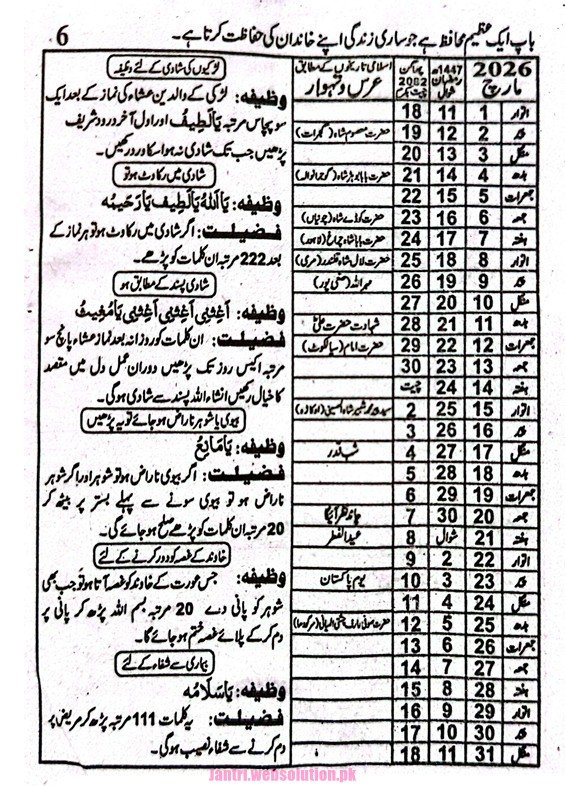 باپ ایک عظیم محافظ ہے جو ساری زندگی اپنے خاندان کی حفاظت کرتا ہے۔ 6
2026 مارچ | 1447ھ رمضان شوال | پھاگن 2082 چیت بکرمی | اسلامی تاریخوں کے مطابق عرس و تہوار
اتوار 1 11 18
پیر 2 12 19 حضرت معصوم شاہ (گجرات)
منگل 3 13 20
بدھ 4 14 21
جمعرات 5 15 22
جمعہ 6 16 23
ہفتہ 7 17 24 حضرت بابا شاہ چراغ (لاہور)
اتوار 8 18 25 حضرت لال شاہ قلندر (مری)
پیر 9 19 26
منگل 10 20 27
بدھ 11 21 28 شہادت حضرت علیؓ
جمعرات 12 22 29 حضرت امام (سیالکوٹ)
جمعہ 13 23 30
ہفتہ 14 24 چیت
اتوار 15 25 2
پیر 16 26 3
منگل 17 27 4 شب قدر
بدھ 18 28 5
جمعرات 19 29 6
جمعہ 20 30 7 چاند نظر آئیگا
ہفتہ 21 شوال 8 عید الفطر
اتوار 22 2 9
پیر 23 3 10 یوم پاکستان
منگل 24 4 11
بدھ 25 5 12
جمعرات 26 6 13
جمعہ 27 7 14
ہفتہ 28 8 15
اتوار 29 9 16
پیر 30 10 17
منگل 31 11 18
لڑکیوں کی شادی کے لئے وظیفہ
وظیفہ: لڑکی کے والدین عشاء کی نماز کے بعد ایک
سو پچاس مرتبہ یَا لَطِیفُ اور اول آخر درود شریف
پڑھیں جب تک شادی نہ ہو اس کا ورد رکھیں۔
شادی میں رکاوٹ ہو تو
وظیفہ: یَا اَللہُ یَا لَطِیفُ یَا رَحِیمُ
فضیلت: اگر شادی میں رکاوٹ ہو تو ہر نماز کے
بعد 222 مرتبہ ان کلمات کو پڑھے۔
شادی پسند کے مطابق ہو
وظیفہ: اَغِثْنِی اَغِثْنِی اَغِثْنِی یَا مُغِیثُ
فضیلت: ان کلمات کو روزانہ بعد نماز عشاء پانچ سو
مرتبہ اکیس روز تک پڑھیں دوران عمل دل میں مقصد
کا خیال رکھیں انشاء اللہ پسند سے شادی ہو گی۔
بیوی یا شوہر ناراض ہو جائے تو یہ پڑھیں
وظیفہ: یَا مَانِعُ
فضیلت: اگر بیوی ناراض ہو تو شوہر اور اگر شوہر
ناراض ہو تو بیوی سونے سے پہلے بستر پر بیٹھ کر
20 مرتبہ ان کلمات کو پڑھے صلح ہو جائے گی۔
خاوند کے غصہ کو دور کرنے کے لئے
وظیفہ: جس عورت کے خاوند کو غصہ آتا ہو تو جب بھی
شوہر کو پانی دے 20 مرتبہ بسم اللہ پڑھ کر پانی پر
دم کر کے پلائے غصہ ختم ہو جائے گا۔
بیماری سے شفاء کے لئے
وظیفہ: یَا سَلَامُ
فضیلت: یہ کلمات 111 مرتبہ پڑھ کر مریض پر
دم کرنے سے شفاء نصیب ہو گی۔
Jantri.websolution.pk